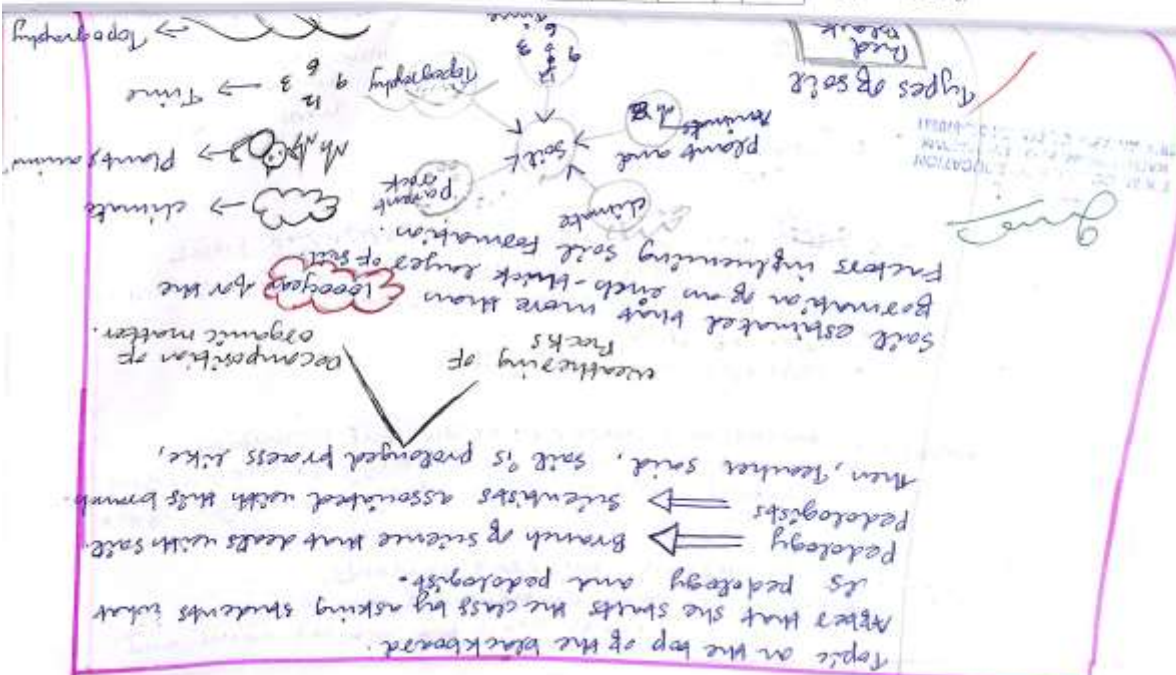 Topic on the top of the blackboard.
After that she starts the class by asking students what
is pedology and pedologist.
Pedology ⇒ Branch of science that deals with soil.
Pedologists ⇒ Scientists associated with this branch.
then, teacher said, soil is prolonged process like,
weathering of Rocks
Decomposition of organic matter.
Soil estimated that more than 1000 year for the
formation of an inch-thick layer of soil.
Factors influencing soil formation.
climate
Parent rock
plant and
Soil
Topography
12
9 3
6
Time
climate
Plants, anim
12
9 3 → Time
6
→ Topography
Types of soil
Red
Black